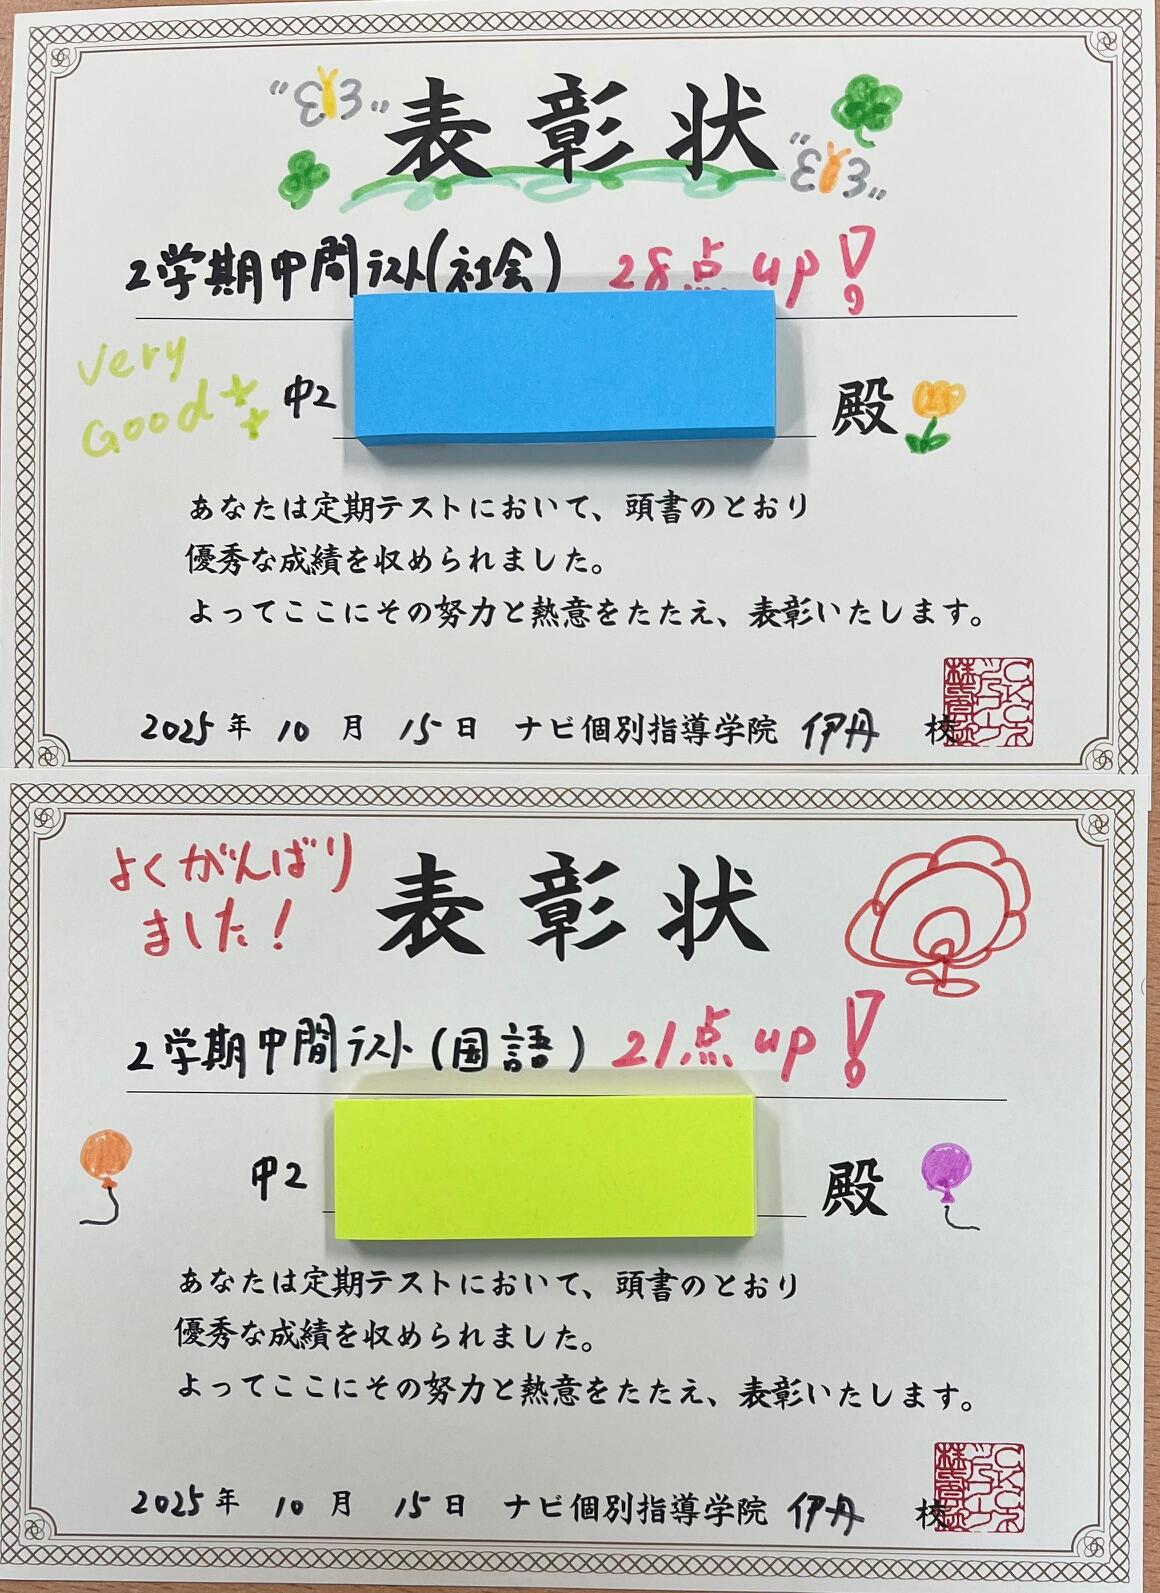 表彰状
2学期中間テスト(社会) 28点up!
Very
Good
中2 殿
あなたは定期テストにおいて、頭書のとおり
優秀な成績を収められました。
よってここにその努力と熱意をたたえ、表彰いたします。
2025年 10月 15日 ナビ個別指導学院 伊丹 校
よくがんばり
ました!
表彰状
2学期中間テスト(国語) 21点up!
中2 殿
あなたは定期テストにおいて、頭書のとおり
優秀な成績を収められました。
よってここにその努力と熱意をたたえ、表彰いたします。
2025年 10月 15日 ナビ個別指導学院 伊丹 校